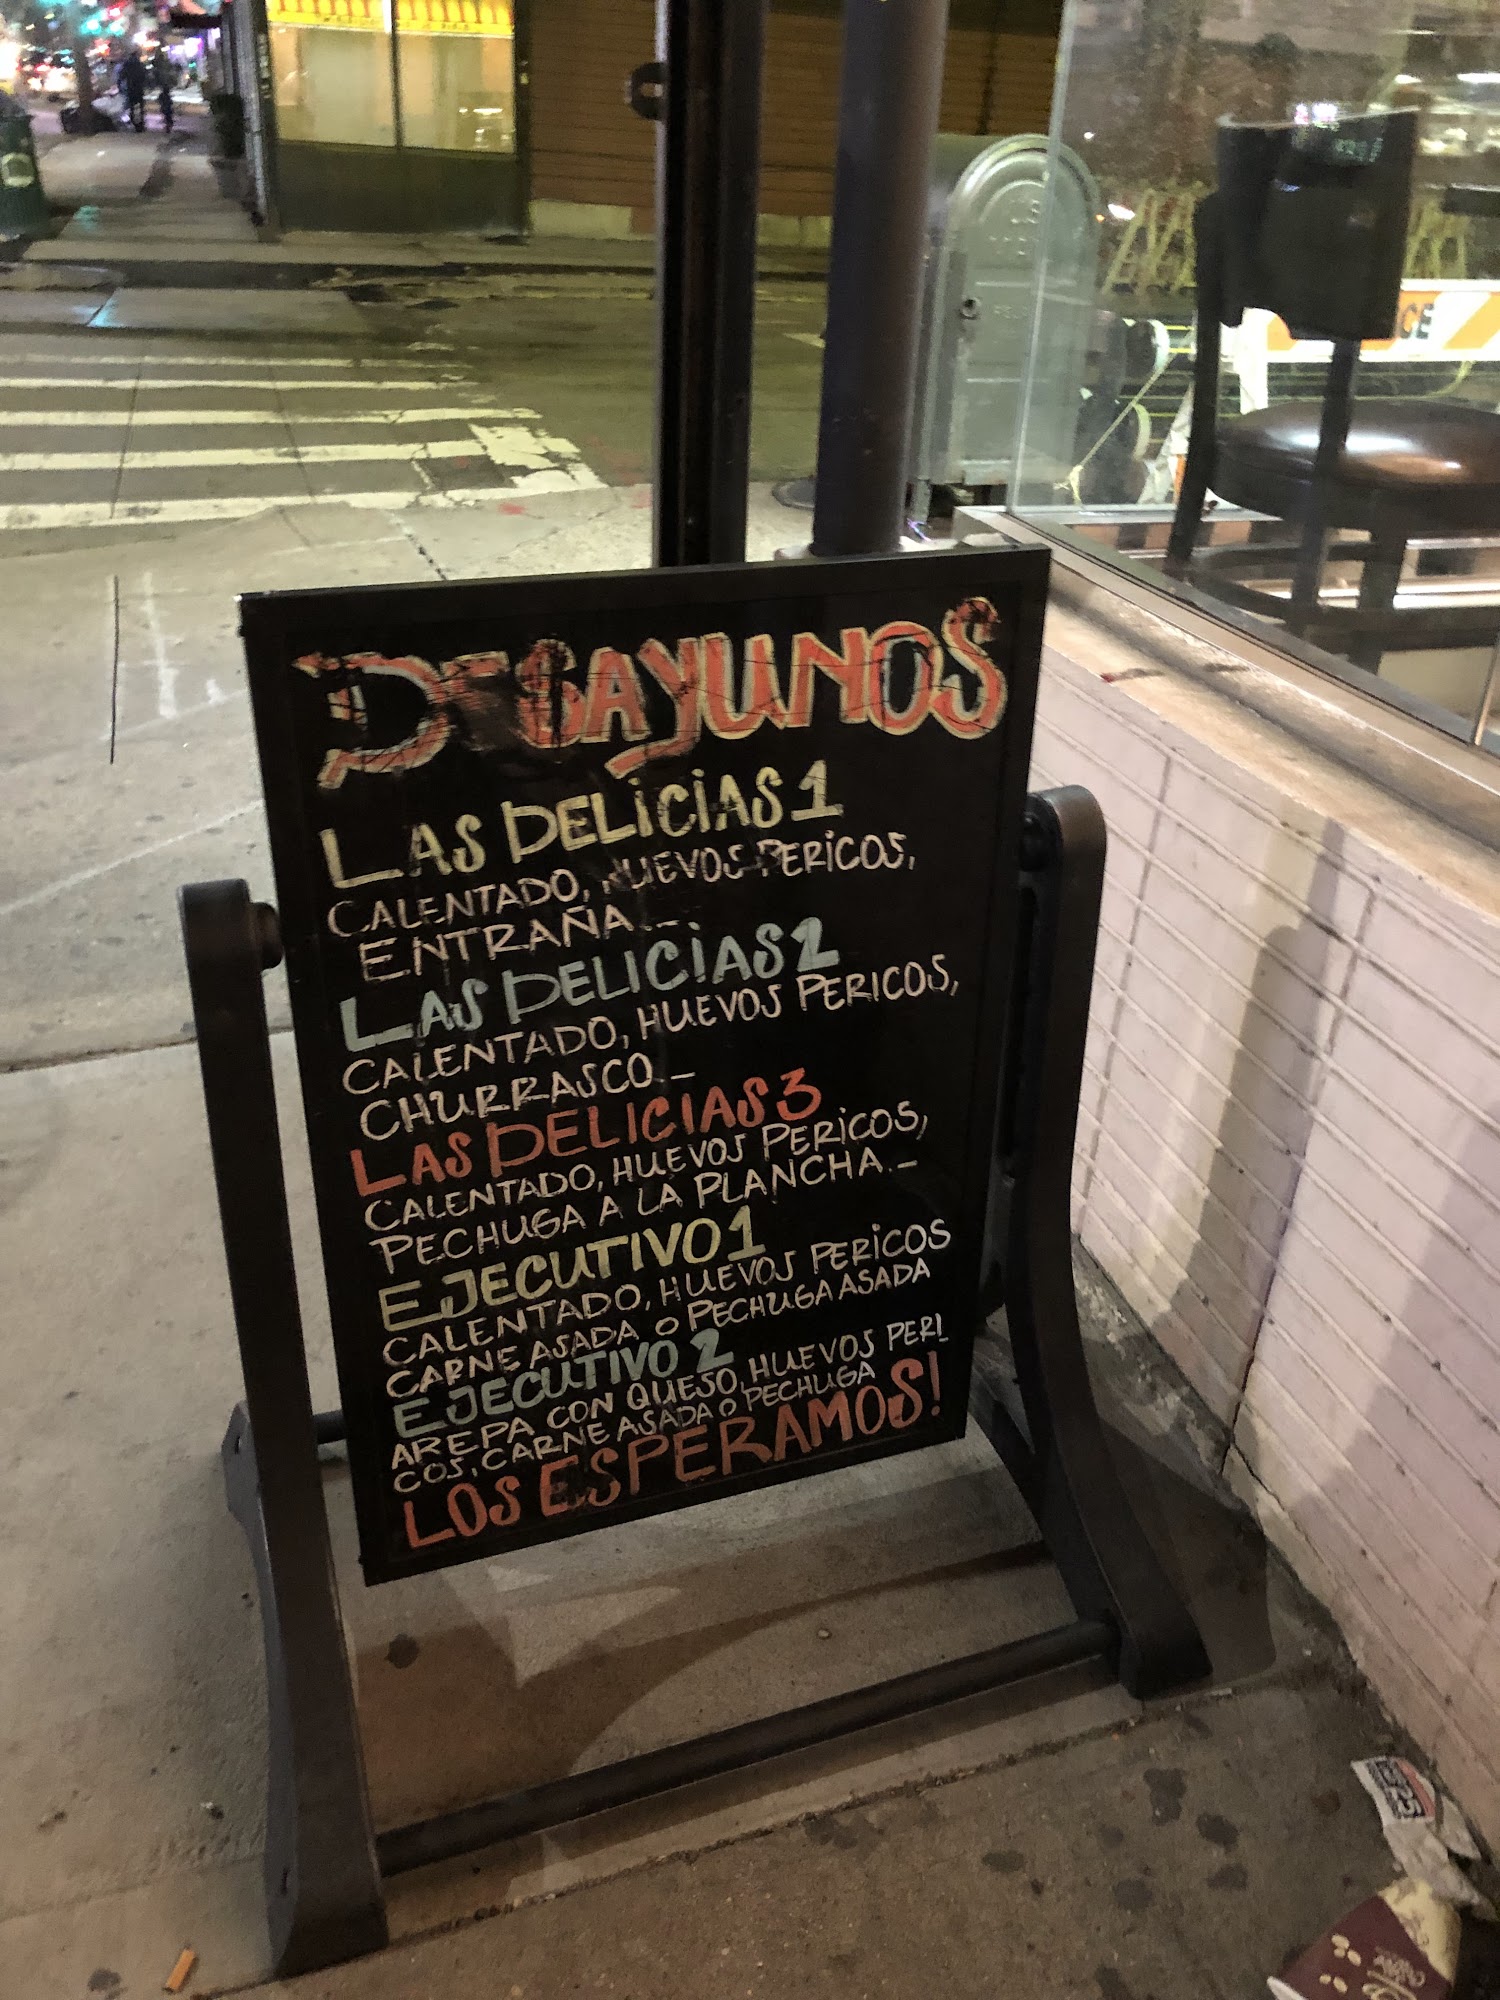 DESAYUNOS
LAS DELICIAS 1
CALENTADO, HUEVOS PERICOS,
ENTRAÑA.-
LAS DELICIAS 2
CALENTADO, HUEVOS PERICOS,
CHURRASCO.-
LAS DELICIAS 3
CALENTADO, HUEVOS PERICOS,
PECHUGA A LA PLANCHA.-
EJECUTIVO 1
CALENTADO, HUEVOS PERICOS
CARNE ASADA O PECHUGA ASADA
EJECUTIVO 2
AREPA CON QUESO, HUEVOS PERI_
COS, CARNE ASADA O PECHUGA
LOS ESPERAMOS!